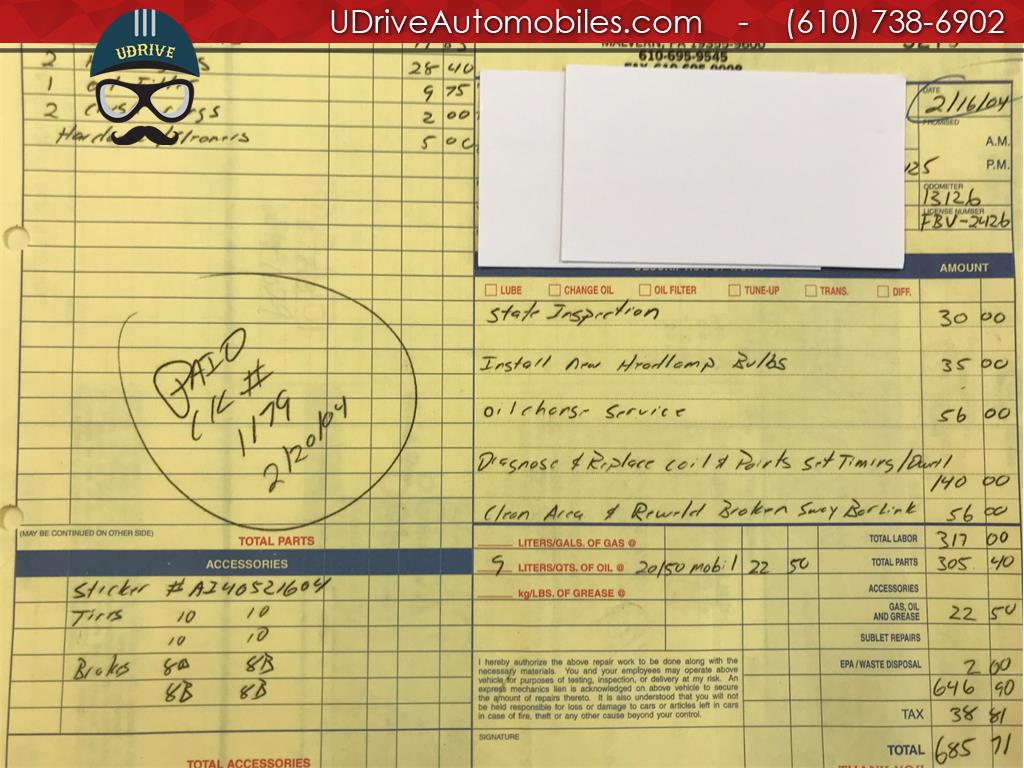 UDriveAutomobiles.com - (610) 738-6902
UDRIVE
MALVERN, PA 19355-9600
610-695-9545
2
28 40
1
9 75
2
2 00
5 00
DATE
2/16/04
PROMISED
A.M.
P.M.
ODOMETER
13126
LICENSE NUMBER
FBV-2426
AMOUNT
LUBE CHANGE OIL OIL FILTER TUNE-UP TRANS. DIFF.
State Inspection 30 00
Install new Headlamp Bulbs 35 00
oil change Service 56 00
Diagnose & Replace coil & Points Set Timing/Dwell
140 00
Clean Area & Reweld Broken Sway Bar Link 56 00
PAID
CK #
1179
2/20/04
(MAY BE CONTINUED ON OTHER SIDE)
TOTAL PARTS
ACCESSORIES
Sticker # AI40521604
Tires 10 10
10 10
Brakes 8B 8B
8B 8B
TOTAL ACCESSORIES
LITERS/GALS. OF GAS @
9 LITERS/QTS. OF OIL @ 20/50 mobil 22 50
kg/LBS. OF GREASE @
TOTAL LABOR 317 00
TOTAL PARTS 305. 40
ACCESSORIES
GAS, OIL
AND GREASE 22 50
SUBLET REPAIRS
EPA / WASTE DISPOSAL 2 00
646 90
TAX 38 81
TOTAL 685 71
I hereby authorize the above repair work to be done along with the
necessary materials. You and your employees may operate above
vehicle for purposes of testing, inspection, or delivery at my risk. An
express mechanics lien is acknowledged on above vehicle to secure
the amount of repairs thereto. It is also understood that you will not
be held responsible for loss or damage to cars or articles left in cars
in case of fire, theft or any other cause beyond your control.
SIGNATURE